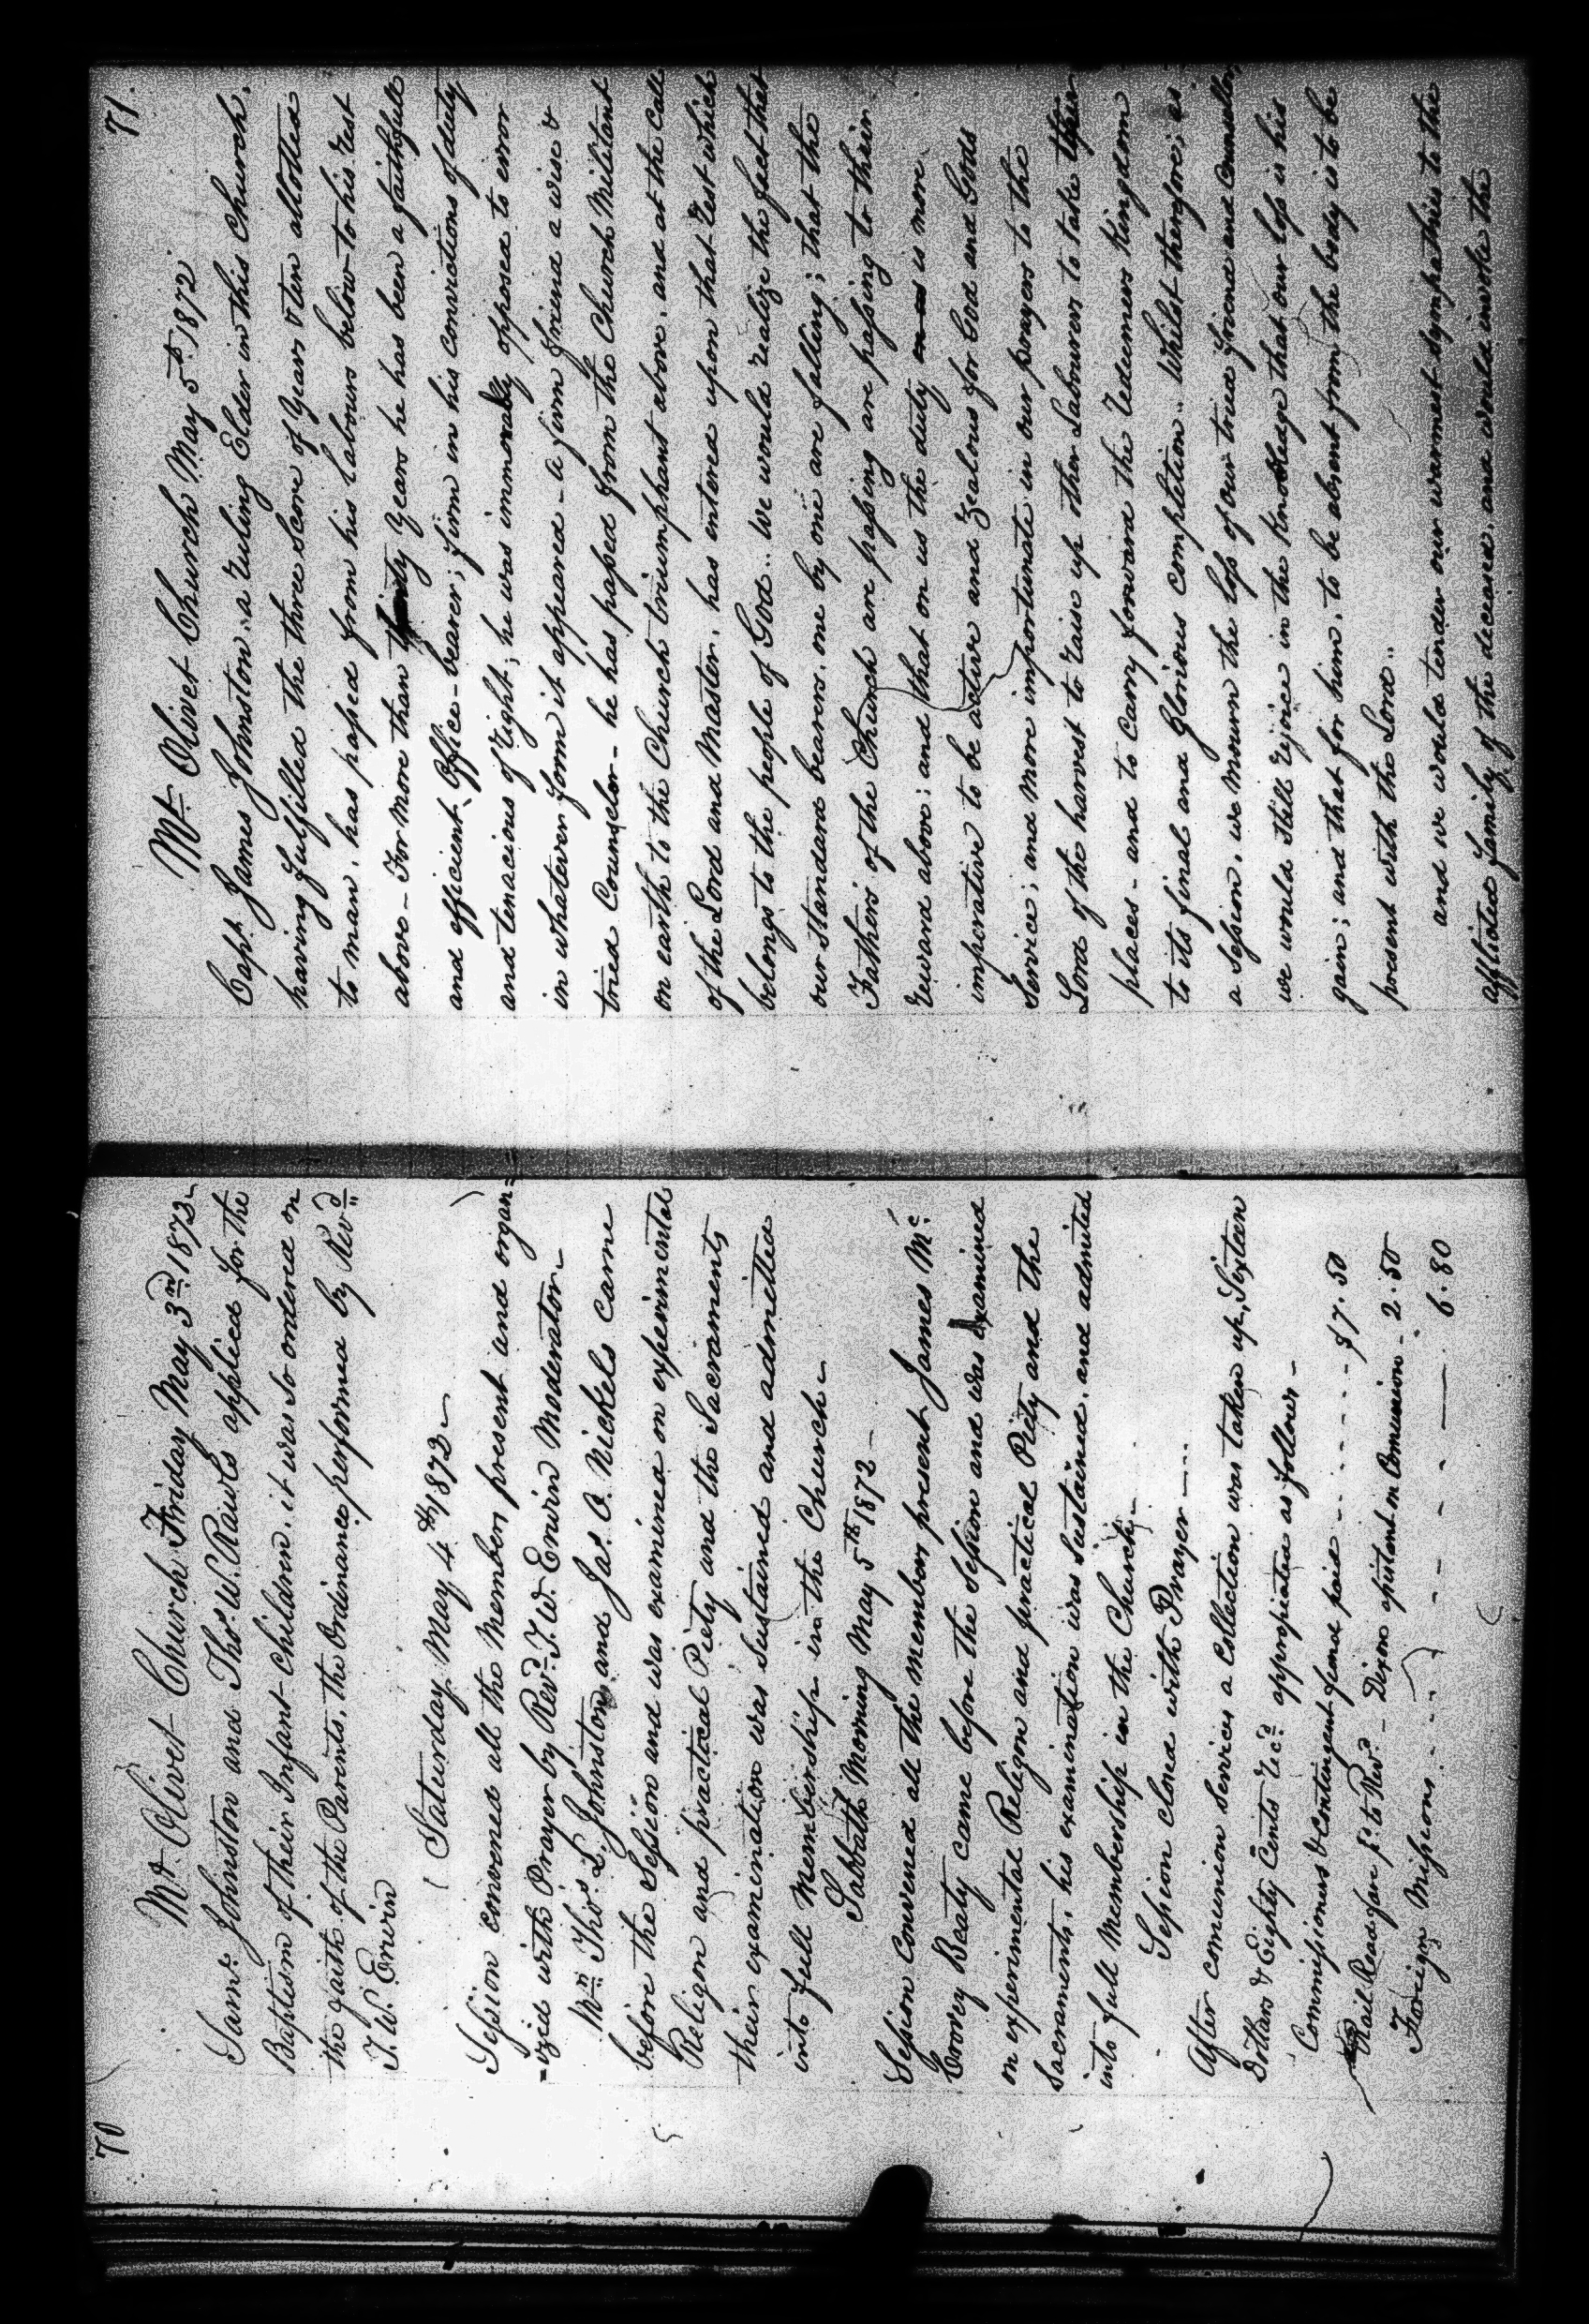 70
Mt. Olivet Church Friday May 3rd 1872
Saml. Johnston and Thos. W. Rawls applied for the
Baptism of their Infant Children. it was so ordered on
the faith of the Parents, the Ordinance performed by Revd.
T. W. Erwin
Saturday May 4th 1872
Session convened all the Members present and organ=
-ized with Prayer by Revd. T. W. Erwin Moderator-
Mrs. Thos. L. Johnston and Jas. O. Nickels came
before the Session and was examined on experimental
Religon and practical Piety and the Sacraments
their examination was Sustained and admitted
into full Membership in the Church-
Sabbath Morning May 5th 1872-
Session Convened all the members present James Mc.
Dorvey Beaty came before the Session and was Examined
on experimental Religon and practical Piety and the
Sacraments, his examination was Sustained, and admited
into full Membership in the Church-
Session closed with Prayer
After comunion Services a Collection was taken up, Sixteen
Dollars & Eighty Cents Recd. appropriated as follows-
Commissioners & Contingent fund paid $7.50
Rail Road fare pd. to Revd. - Dixon assistant on Comunion - 2.50
Foreign Missions 6.80
71.
Mt. Olivet Church May 5th 1872
Capt. James Johnston, a Ruling Elder in this Church,
having fulfilled the three Score of Years & ten allotted
to man, has passed from his labours below to his Rest
above - For more than Years he has been a faithfull
and efficient Office-bearer; firm in his convictions of duty
and tenacious of Right; he was immovably opposed to error
in whatever form it appeared - a firm friend a wise &
tried Counselor - he has passed from the Church Militant
on earth to the Church triumphant above, and at the Call
of the Lord and Master, has entered upon that Rest which
belongs to the people of God.. We would realize the fact that
our Standard bearers, one by one are falling; that the
Fathers of the Church are passing are passing to their
Reward above; and that on us the duty is more
imperative to be active and Zealous for God and Gods
Service; and more importunate in our prayers to the
Lord of the harvest to raise up other Labourers to take their
places - and to carry forward the Redeemers Kingdom
to its final and Glorious completion.. Whilst therefore; as
a Session, we mourn the loss of our tried friend and Counsellor,
we would still rejoice in the Knowledge that our loss is his
gain; and that for him, to be absent from the body is to be
present with the Lord..
and we would tender our warmest sympathies to the
afflicted family of the deceased, and would invoke the